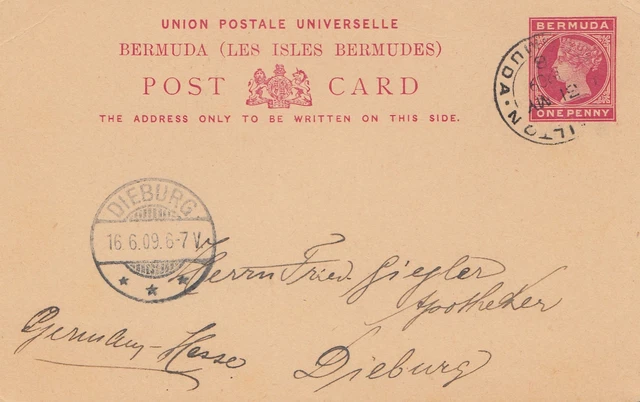 UNION POSTALE UNIVERSELLE
BERMUDA (LES ISLES BERMUDES)
POST CARD
THE ADDRESS ONLY TO BE WRITTEN ON THIS SIDE.
BERMUDA
ONE PENNY
ILTON. MUDA.
DIEBURG
16.6.09.6-7V.
Herrn Fried. Giegler
Apotheker
Dieburg
Germany-Hesse